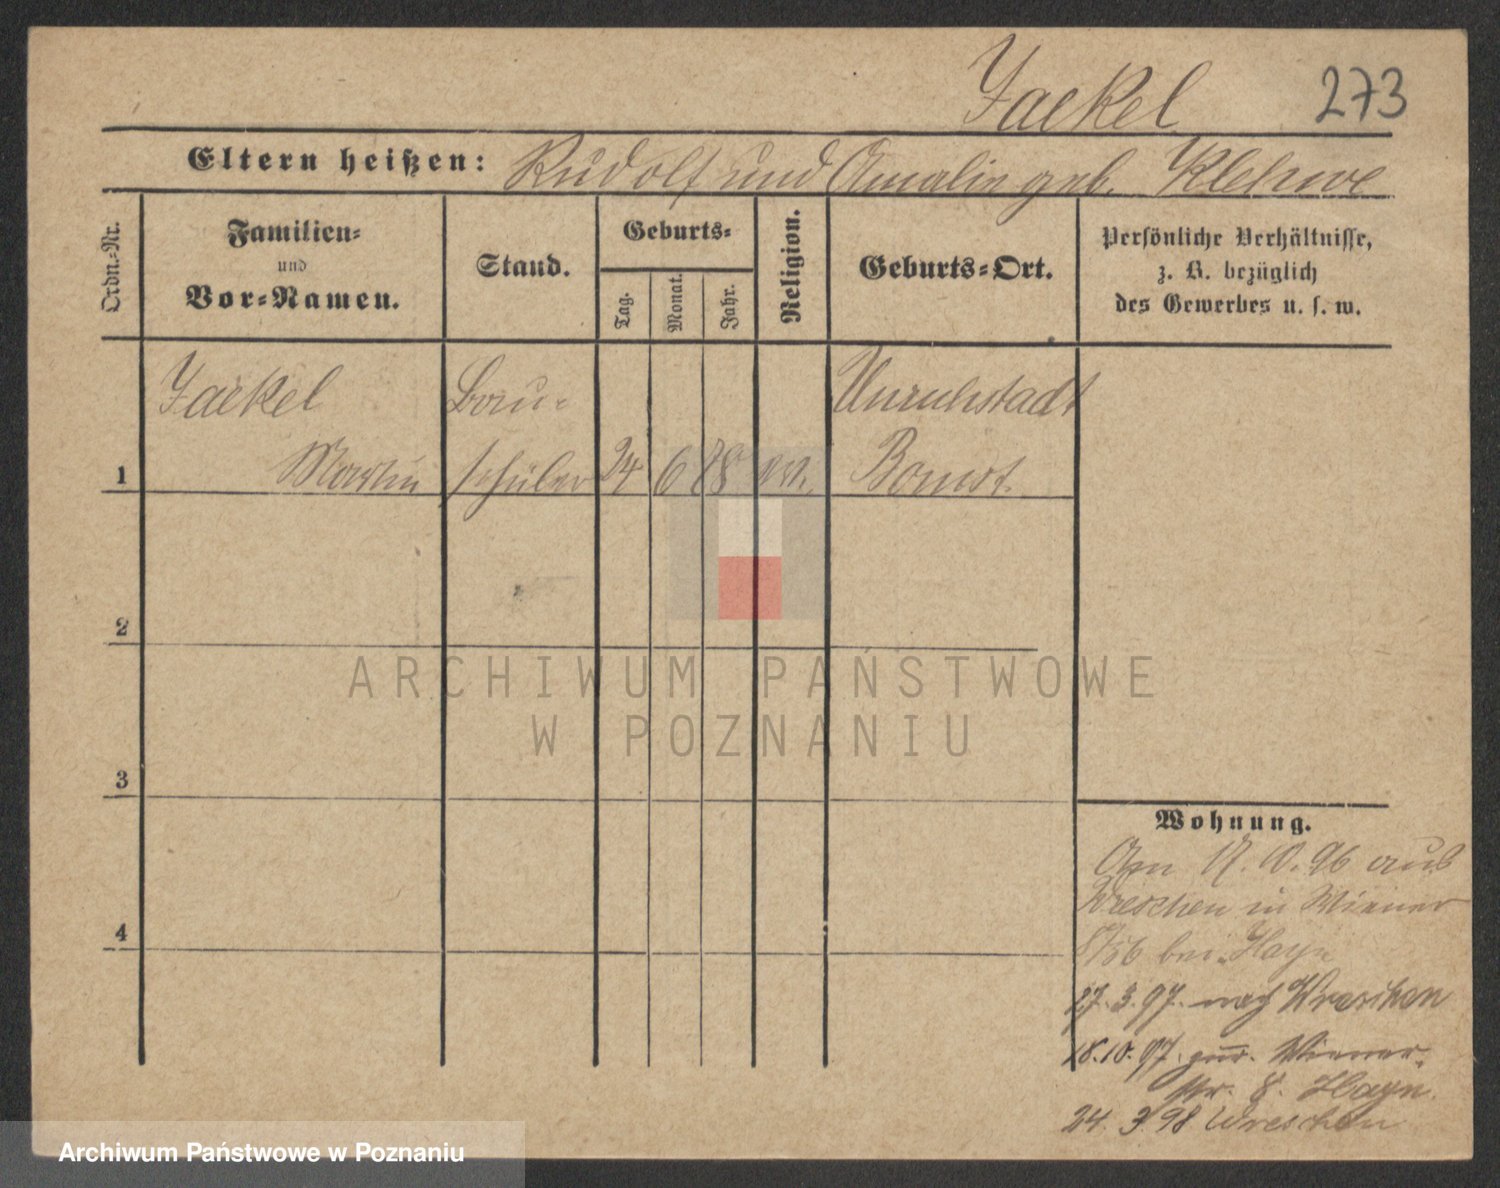 Jaekel 273
Eltern heißen: Rudolf und Amalie geb. Klehwe
Ordn.-Nr.
Familien-
und
Vor-Namen.
Stand.
Geburts-
Tag.
Monat.
Jahr.
Religion.
Geburts-Ort.
Persönliche Verhältnisse,
z. B. bezüglich
des Gewerbes u. s. w.
Jaekel Bau- Unruhstadt
1 Martin schüler 24 6 78 ev. Bomst.
2
ARCHIWUM PAŃSTWOWE
W POZNANIU
3
Wohnung.
Am 17. 10. 96 aus
Wreschen in Wiener
8/56 bei Hayn
27. 3. 97. nach Wreschen
4
18. 10. 97. zur. Wiener-
str. 8. Hayn.
24. 3 98 Wreschen
Archiwum Państwowe w Poznaniu